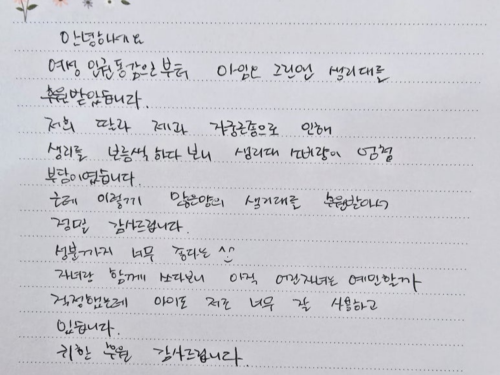 안녕하세요
여성 인권 동감인부터 아임오 그린엔 생리대를
후원받았습니다.
저희 딸과 제가 자궁근종으로 인해
생리를 보름씩 하다보니 생리대 소비량이 엄청
부담이였습니다.
근데 이렇게 많은양의 생리대를 후원받아서
정말 감사드립니다.
성분까지 너무 좋다는 ^^
자녀랑 함께 쓰다보니 아직 어린자녀는 예민할까
걱정했는데 아이도 저도 너무 잘 사용하고
있습니다.
귀한 후원 감사드립니다.